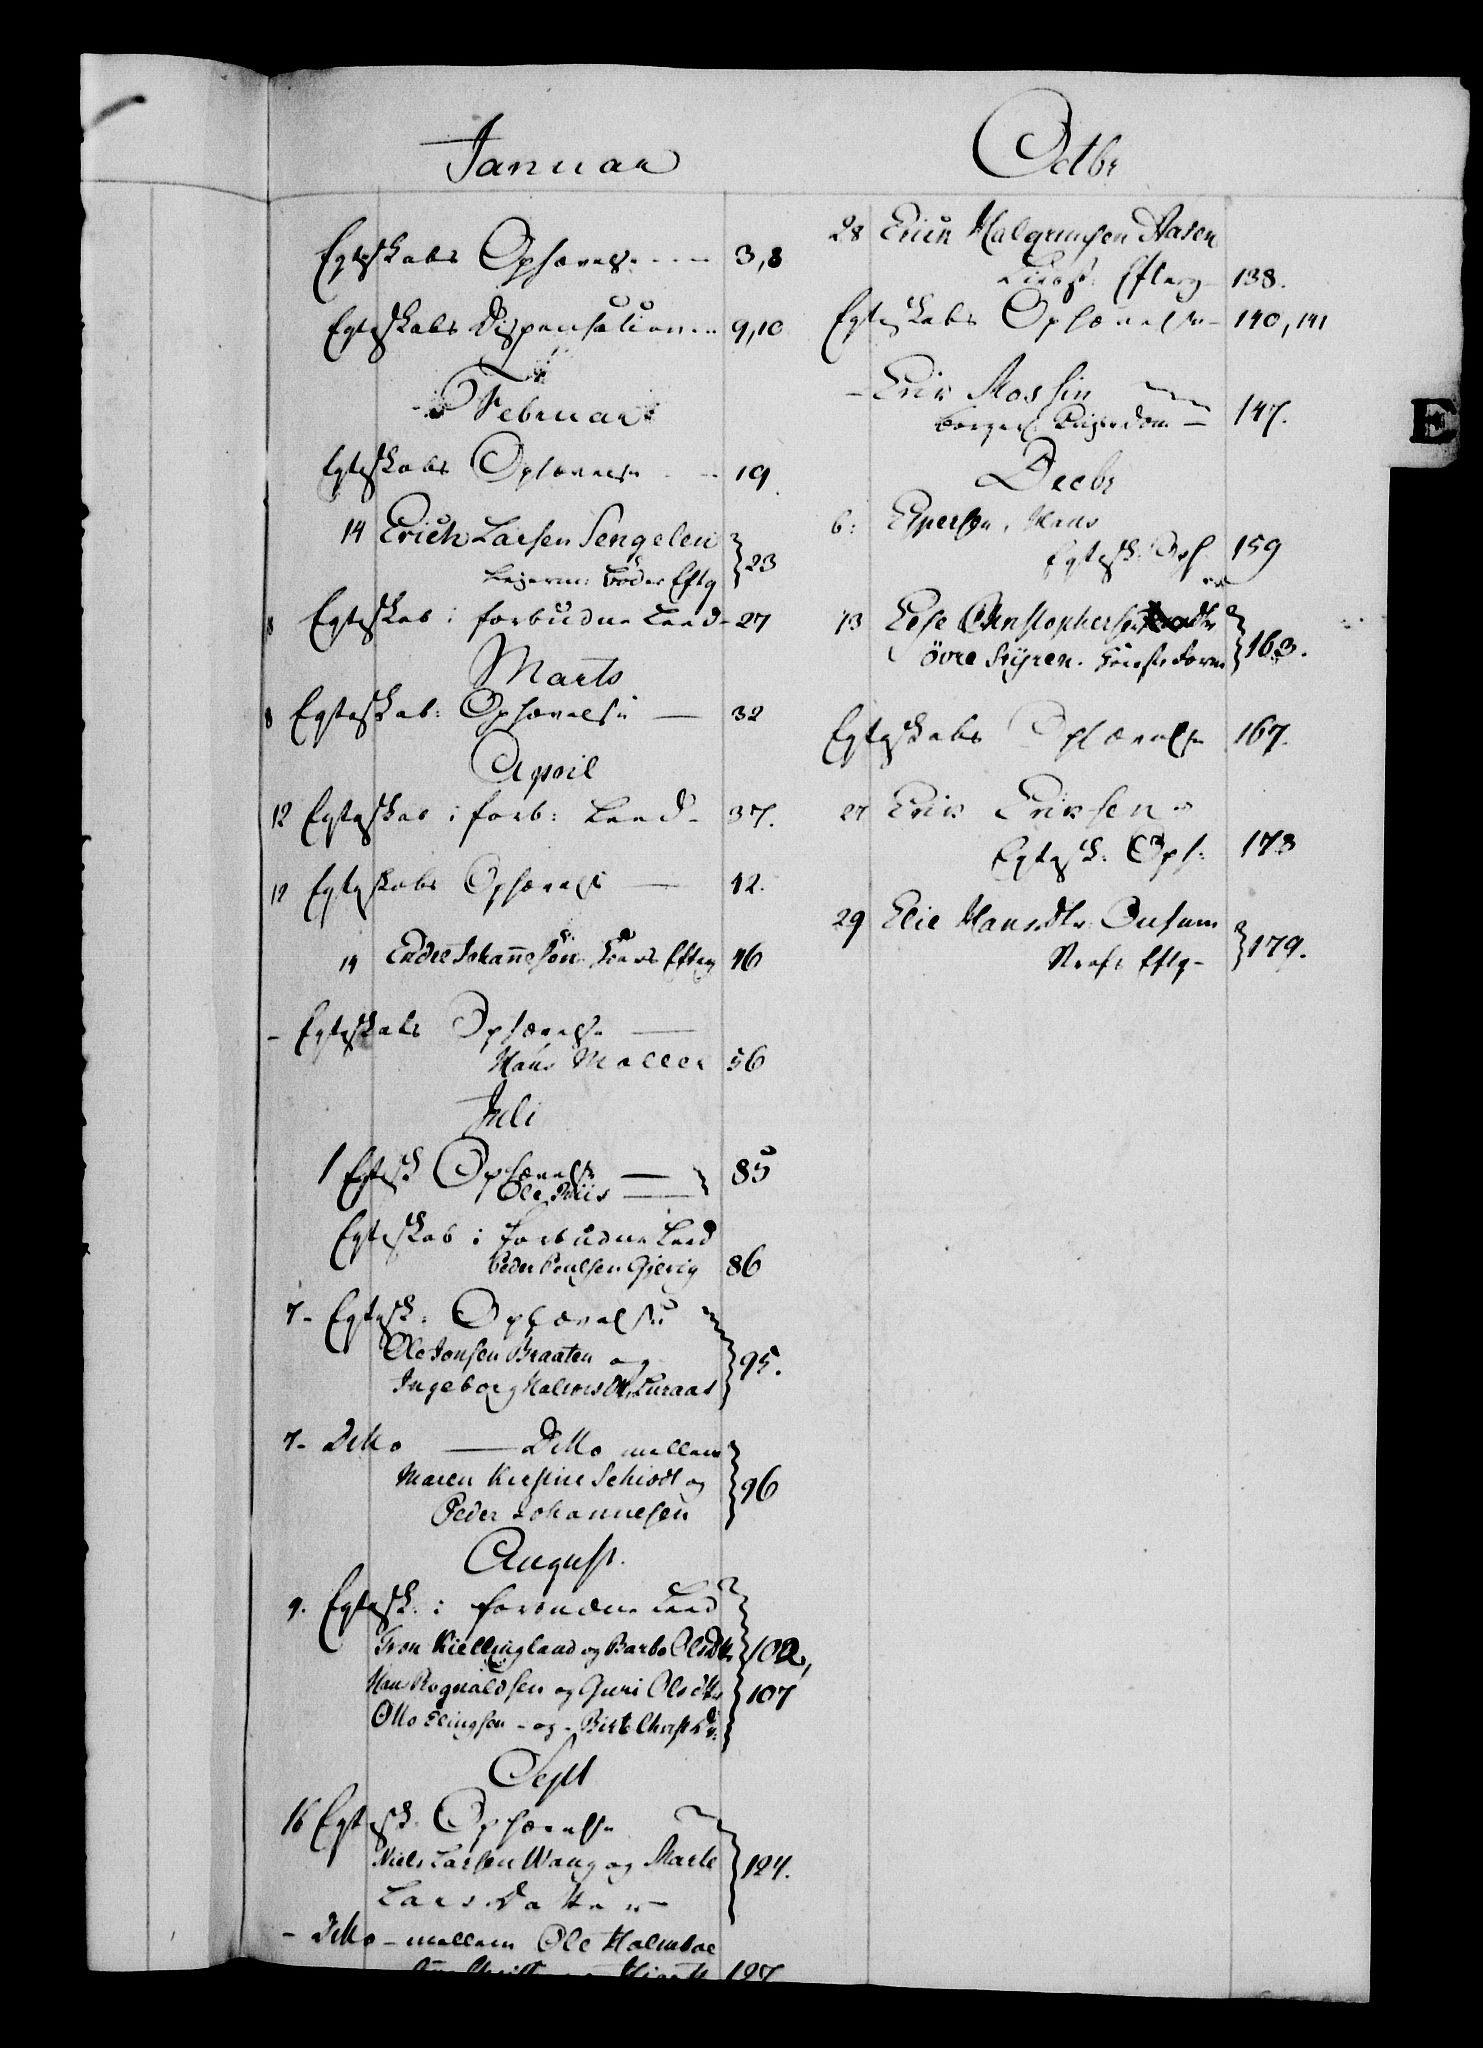 Januar
Egteskabs Ophævelse 3,8
Egteskabs Dispensation 9,10
Februar
Egteskabs Ophævelse 19
14 Erich Larsen Sengelen
Leierm: Bøder Eftg 23
8 Egteskab i forbudne Leed 27
Marts
8 Egteskab: Ophævelse — 32
April
12 Egteskab i forb: Leed - 37.
12 Egteskabs Ophævelse — 42.
14 Endre Johannesøn Eftg 46
- Egteskabs Ophævelse —
Hans Møller 56
Juli
1 Egtesk Ophævelse — 85
Ole Riis —
Egteskab i forbudne Leed
Peder Poulsen Gjerrig 86
7- Egtesk: Ophævelse
Ole Jonsen Braaten og
Ingeborg Halvorsdtr Luraas 95.
7- Ditto — Ditto mellem
Maren Kirstine Schiødt og
Peder Johannesen 96
August.
9. Egtesk: i forbudne Leed
Tron Kiellingland og Barbo Olsdtr 102,
Hans Rognaldsen og Guri Olsdtr 107
Otto Elingsen - og - Birte Christ
Sept
16 Egtesk. Ophævelse
Niels Larsen Wang og Marte 124.
Larsdatter
- Ditto - mellem Ole Holmboe
127
E
Octbr
28 Erich Halgrimsen Aasen
Efterg - 138.
Egteskabs Ophævelse - 140, 141
- Erik Mossin
Borger - 147.
Decbr
6: Espersen, Hans
Egtesk: Oph 159
13 Else Christophersdtr
øvre Styren. 163.
Egteskabs Ophævelse 167.
27 Erik Eriksen
Egtesk: Oph: 178
29 Elie Hansdtr Onsum
Straf Eftg - 179.